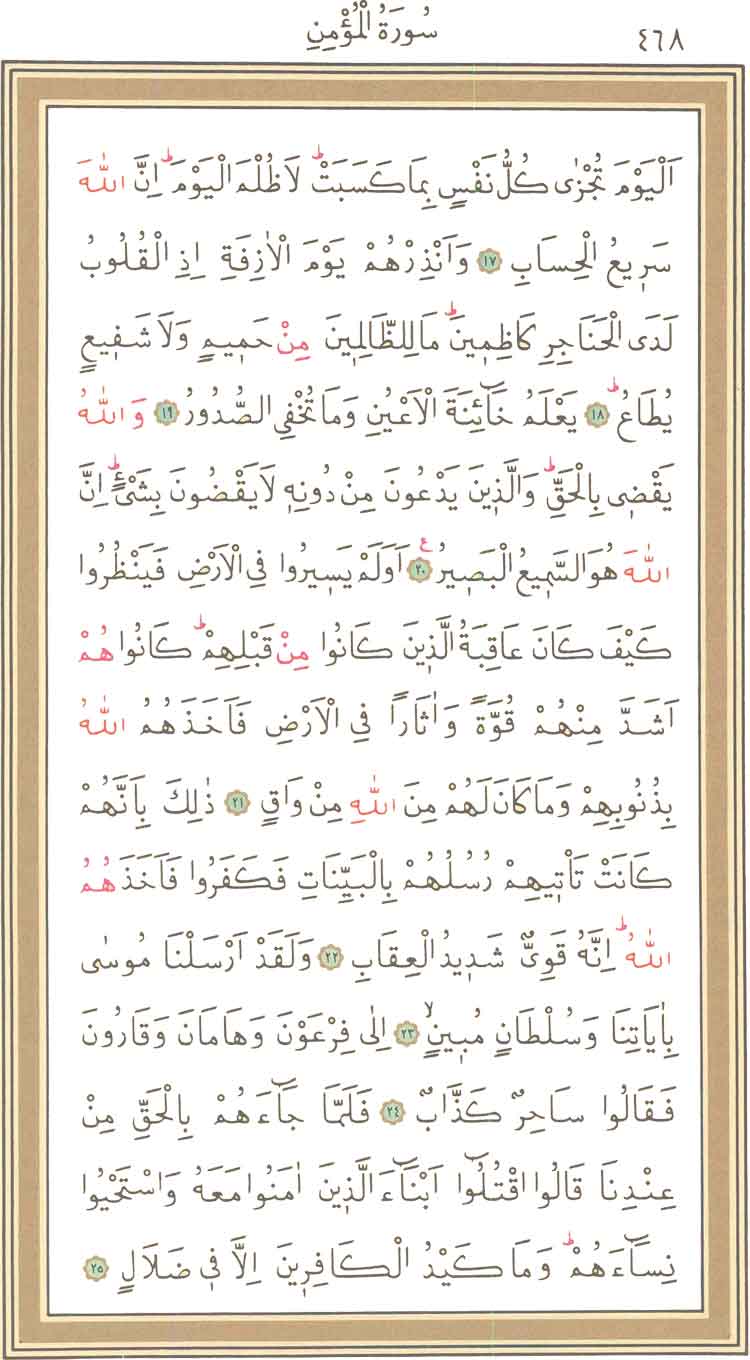 سُورَةُ الْمُؤْمِنِ ٤٦٨
اَلْيَوْمَ تُجْزٰى كُلُّ نَفْسٍ بِمَا كَسَبَتْۜ لَا ظُلْمَ الْيَوْمَۜ اِنَّ اللّٰهَ
سَرٖيعُ الْحِسَابِ ﴿١٧﴾ وَاَنْذِرْهُمْ يَوْمَ الْاٰزِفَةِ اِذِ الْقُلُوبُ
لَدَى الْحَنَاجِرِ كَاظِمٖينَۜ مَا لِلظَّالِمٖينَ مِنْ حَمٖيمٍ وَلَا شَفٖيعٍ
يُطَاعُۜ ﴿١٨﴾ يَعْلَمُ خَٓائِنَةَ الْاَعْيُنِ وَمَا تُخْفِي الصُّدُورُ ﴿١٩﴾ وَاللّٰهُ
يَقْضٖي بِالْحَقِّۜ وَالَّذٖينَ يَدْعُونَ مِنْ دُونِهٖ لَا يَقْضُونَ بِشَيْءٍۜ اِنَّ
اللّٰهَ هُوَ السَّمٖيعُ الْبَصٖيرُ ﴿٢٠﴾ ع اَوَلَمْ يَسٖيرُوا فِي الْاَرْضِ فَيَنْظُرُوا
كَيْفَ كَانَ عَاقِبَةُ الَّذٖينَ كَانُوا مِنْ قَبْلِهِمْۜ كَانُوا هُمْ
اَشَدَّ مِنْهُمْ قُوَّةً وَاٰثَاراً فِي الْاَرْضِ فَاَخَذَهُمُ اللّٰهُ
بِذُنُوبِهِمْ وَمَا كَانَ لَهُمْ مِنَ اللّٰهِ مِنْ وَاقٍ ﴿٢١﴾ ذٰلِكَ بِاَنَّهُمْ
كَانَتْ تَأْتٖيهِمْ رُسُلُهُمْ بِالْبَيِّنَاتِ فَكَفَرُوا فَاَخَذَهُمُ
اللّٰهُۜ اِنَّهُ قَوِيٌّ شَدٖيدُ الْعِقَابِ ﴿٢٢﴾ وَلَقَدْ اَرْسَلْنَا مُوسٰى
بِاٰيَاتِنَا وَسُلْطَانٍ مُبٖينٍۙ ﴿٢٣﴾ اِلٰى فِرْعَوْنَ وَهَامَانَ وَقَارُونَ
فَقَالُوا سَاحِرٌ كَذَّابٌ ﴿٢٤﴾ فَلَمَّا جَٓاءَهُمْ بِالْحَقِّ مِنْ
عِنْدِنَا قَالُوا اقْتُلُٓوا اَبْنَٓاءَ الَّذٖينَ اٰمَنُوا مَعَهُ وَاسْتَحْيُوا
نِسَٓاءَهُمْۜ وَمَا كَيْدُ الْكَافِرٖينَ اِلَّا فٖي ضَلَالٍ ﴿٢٥﴾